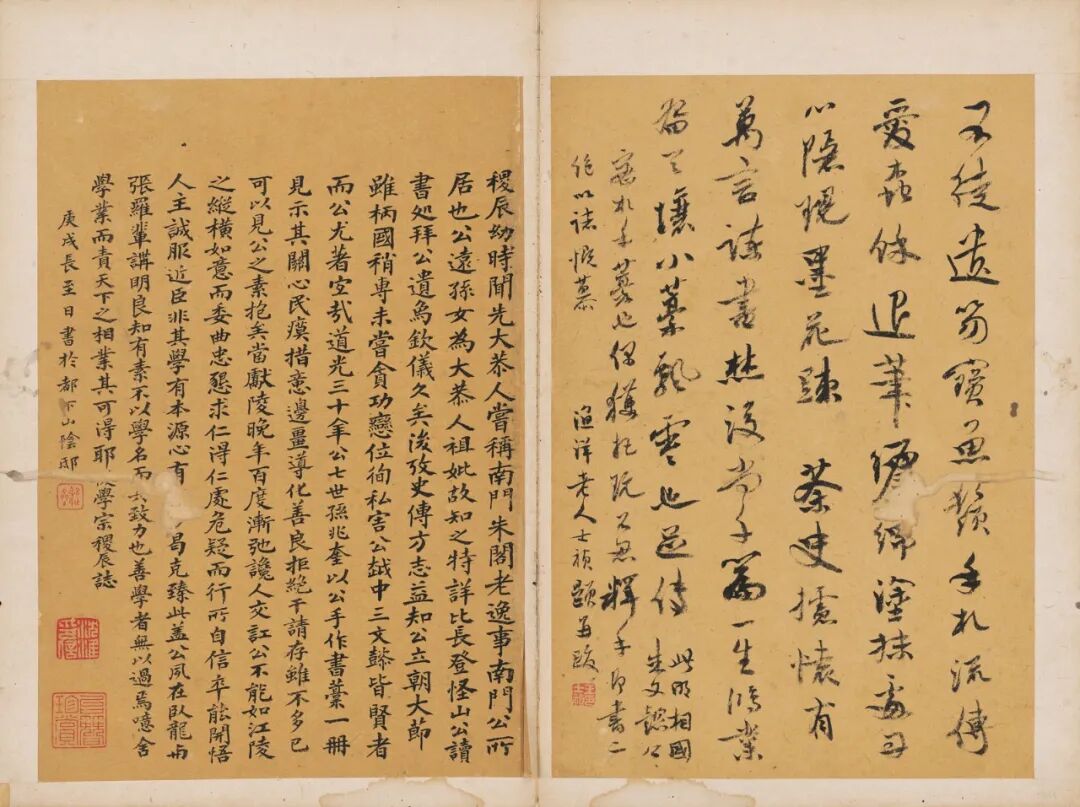 不徒遺笏寶魚鬚手札流傳
愛蠹餘退筆綿塗抹處丹
心隱現墨花疎 茶史攄懷有
萬言諫書焚後尚篇一生修業
留天壤小藁飄零也足傳 此明相國
朱文懿公
密札手藁也偶獲把玩不忍釋手即書二
絕以誌慨慕 漁洋老人士禎題并跋
稷辰幼時聞先大恭人嘗稱南門朱閣老逸事南門公所
居也公遠孫女為大恭人祖妣故知之特詳比長登怪山公讀
書処拜公遺爲欽儀久矣浚攷史傳方志益知公立朝大節
雖柄國稍專未嘗貪功戀位徇私害公越中三文懿皆賢者
而公尤著哉道光三十年公七世孫兆奎以公手作書藁一冊
見示其關心民瘼措意邊畺導化善良拒絕干請存雖不多已
可以見公之素抱矣當獻陵晚年百度漸弛讒人交訌公不能如江陵
之縱橫如意而委曲忠懇求仁得仁處危疑而行所自信卒能開悟
人主誠服近臣非其學有本源心有 曷克臻此蓋公夙在臥龍與
張羅輩講明良知有素不以學名而 致力也善學者無以過焉噫舍
學業而責天下之相業其可得耶 學宗稷辰誌
庚戌長至日書於都下山陰邸
珍賞